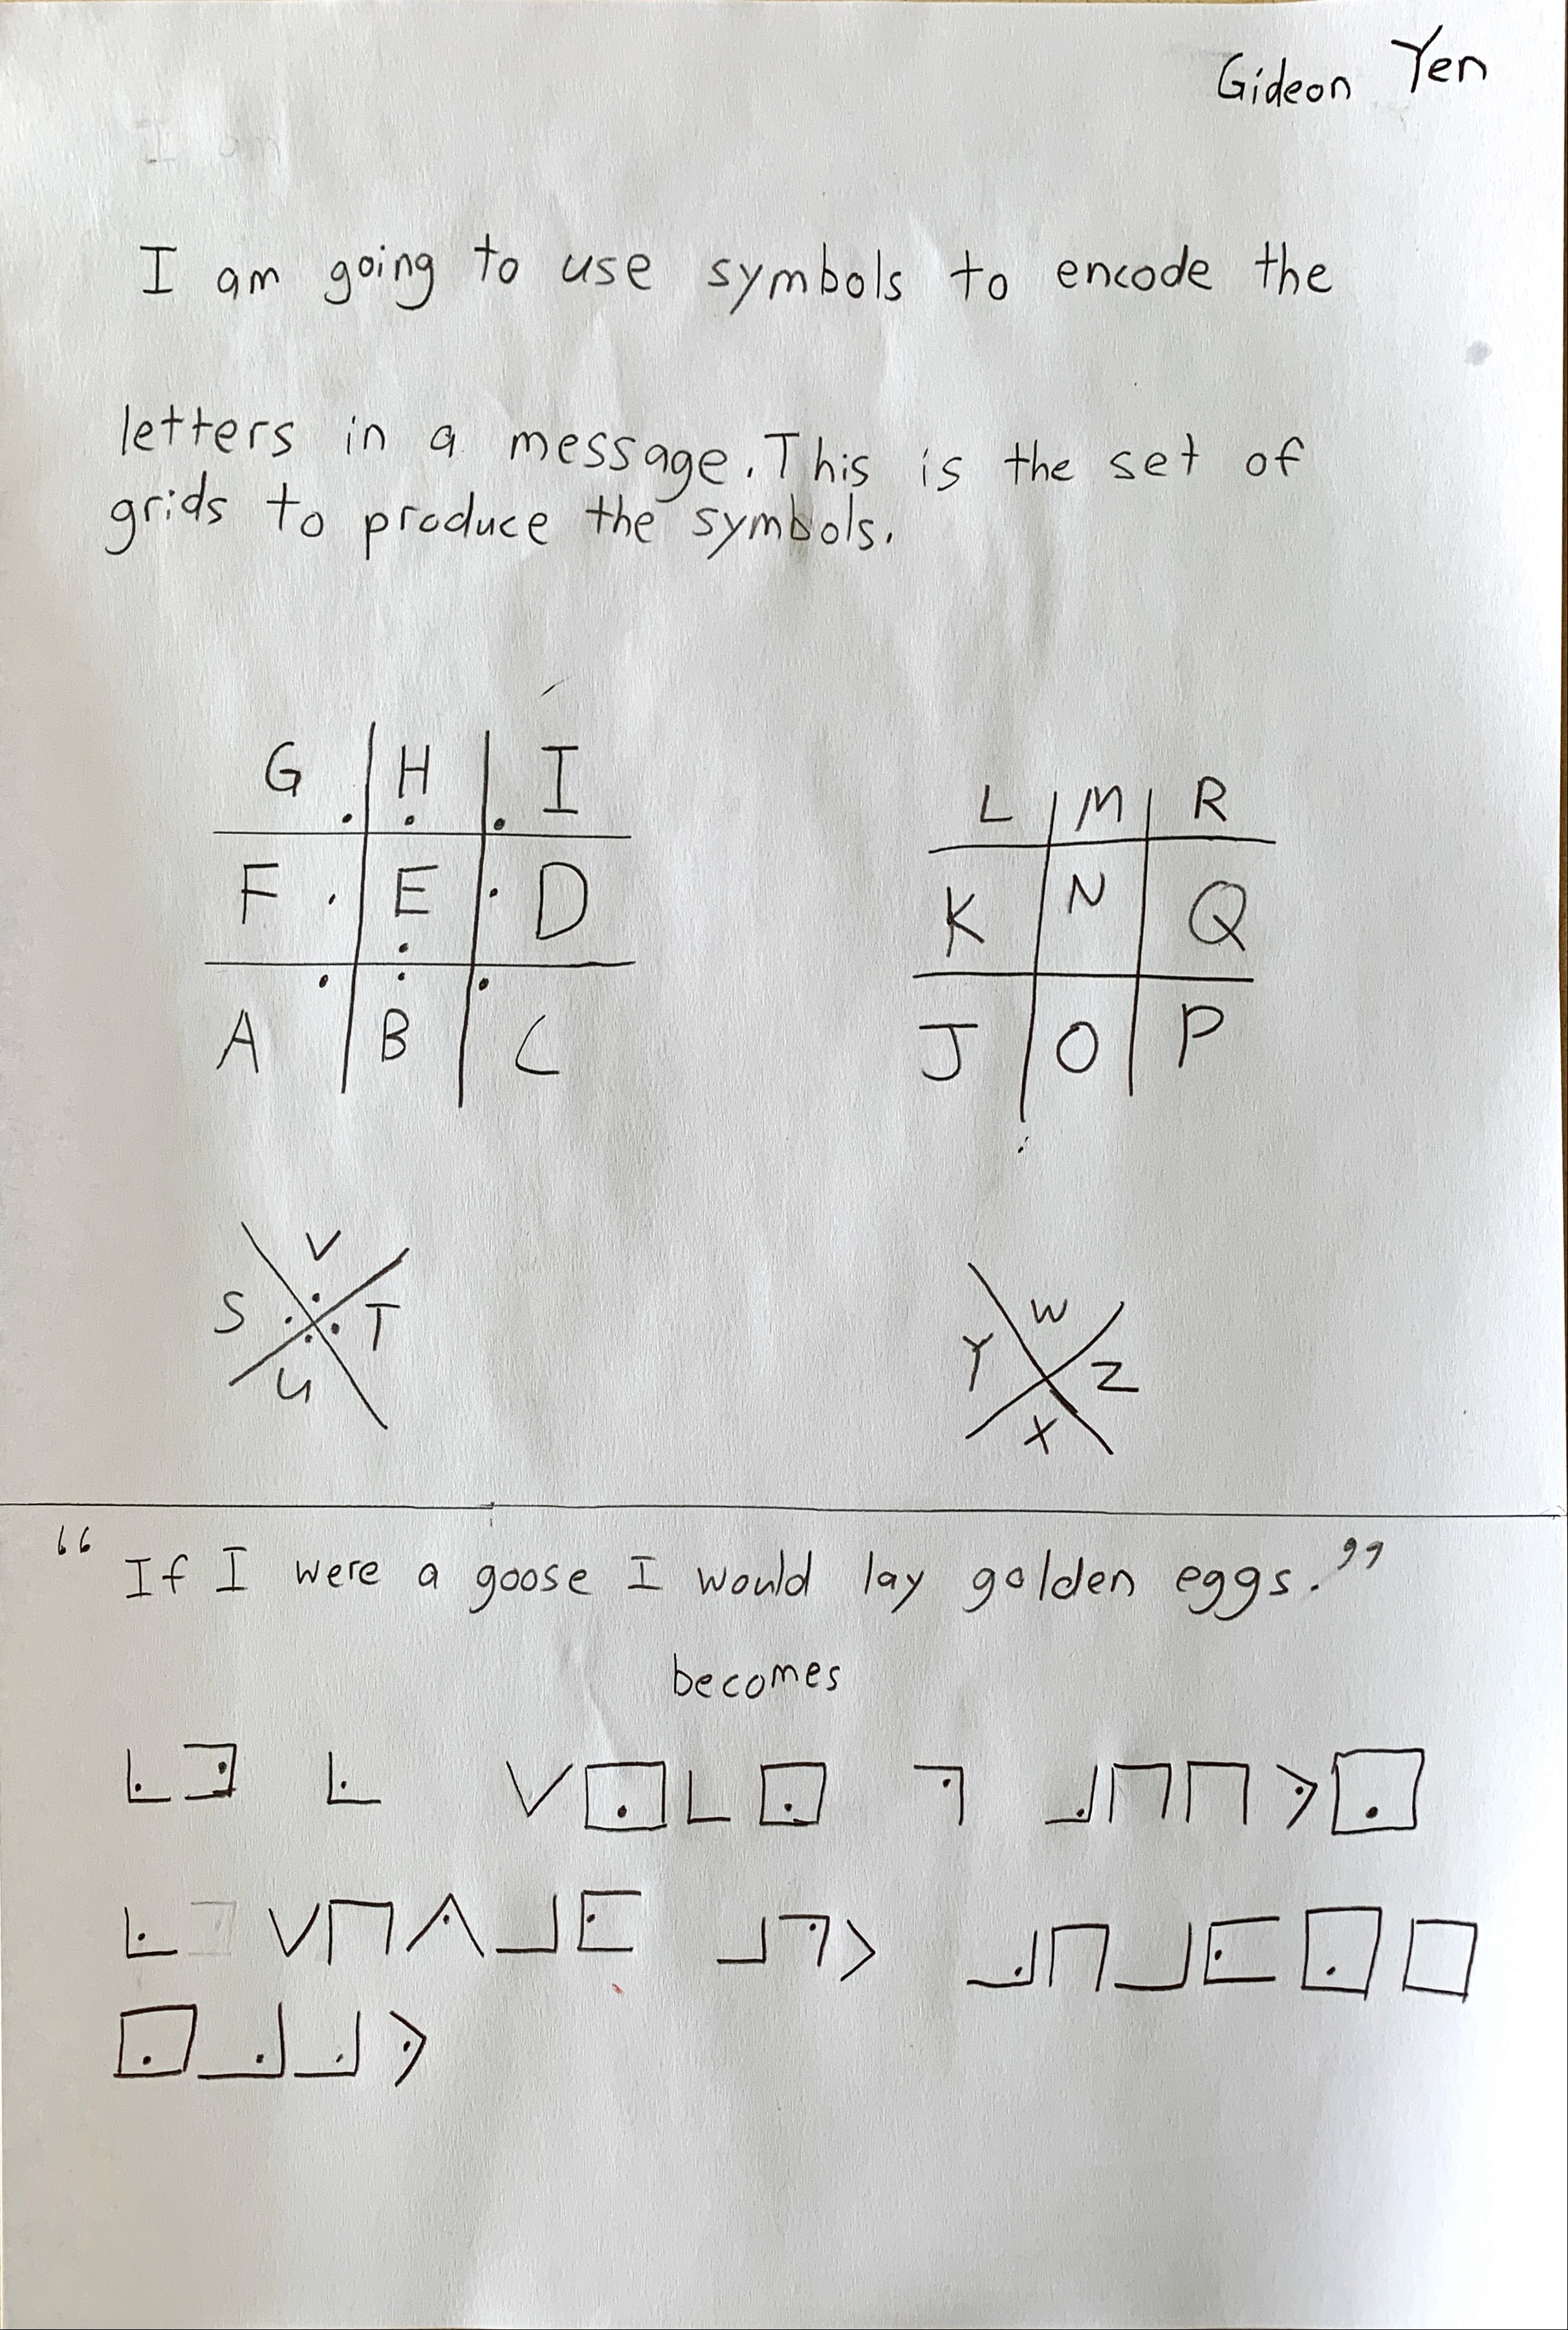 Gideon Yen
I am going to use symbols to encode the
letters in a message. This is the set of
grids to produce the symbols.
G H I
F E D
A B C
L M R
K N Q
J O P
V
S T
U
W
Y Z
X
“If I were a goose I would lay golden eggs.”
becomes